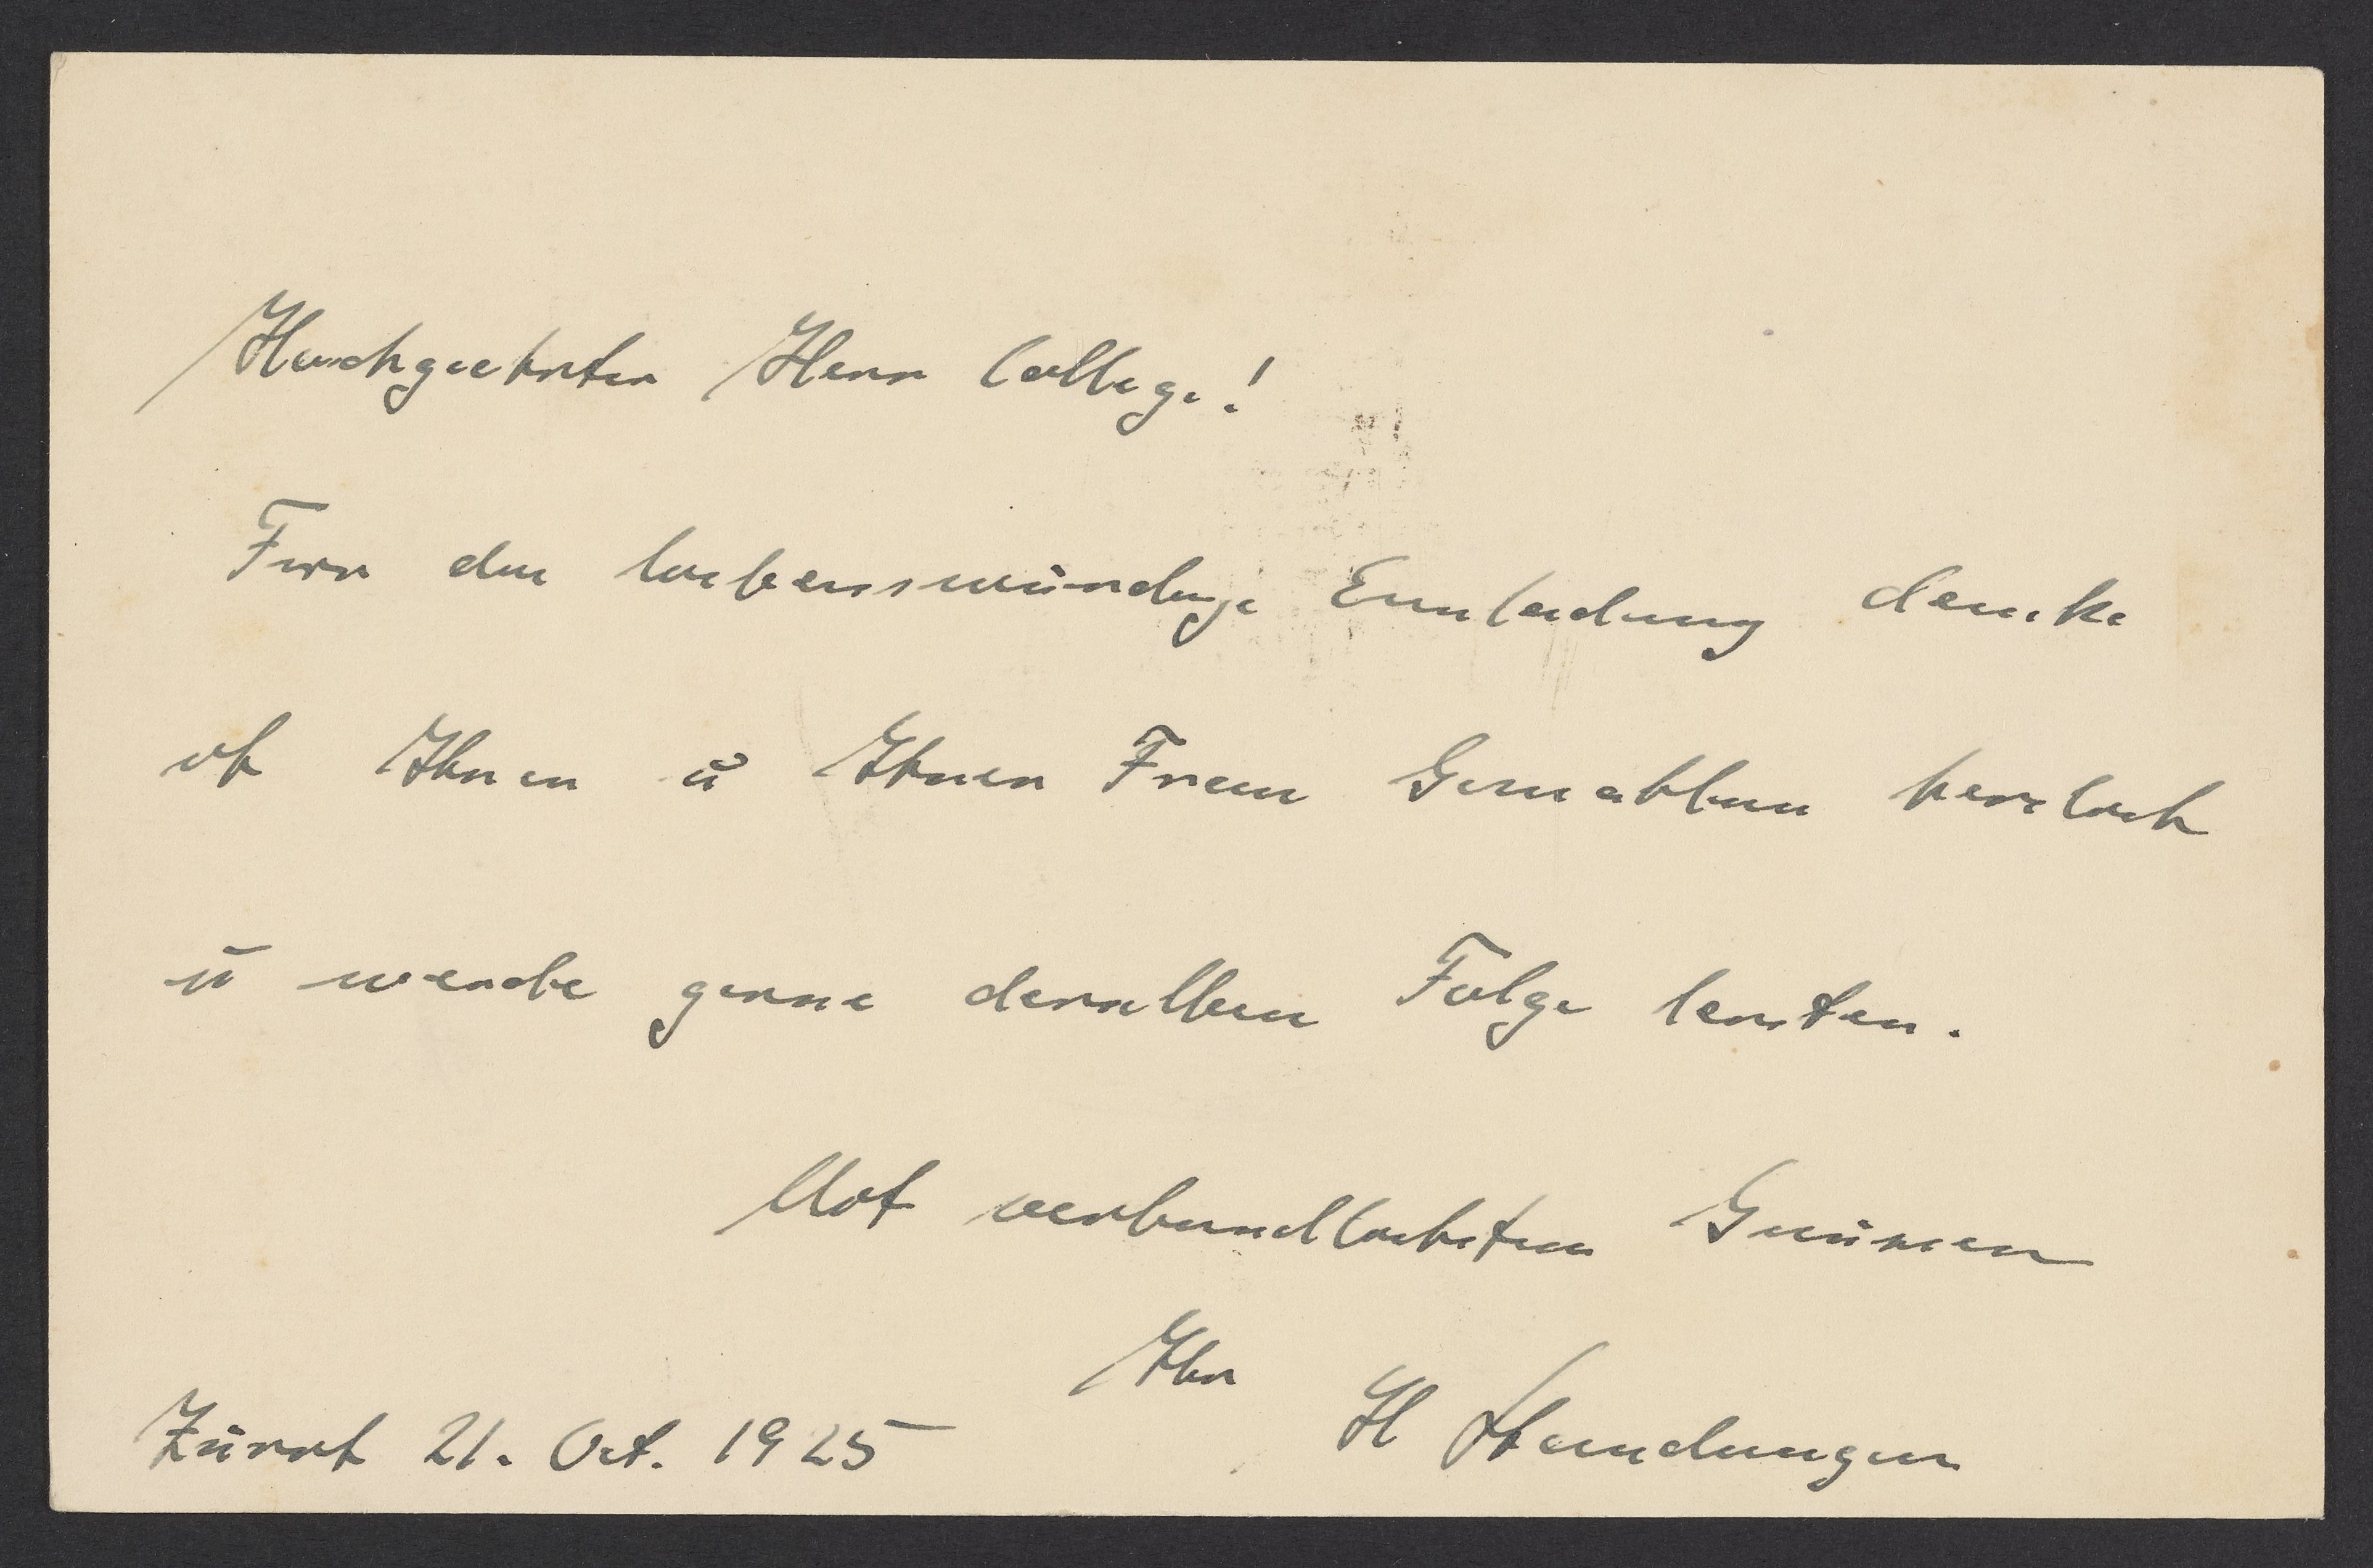 Hochgeehrter Herr College!
Fur die liebenswürdige Einladung danke
ich Ihnen u Ihrer Frau Gemahlin herzlich
u werde gerne derselben Folge leisten.
Mit verbindlichsten Grüssen
Ihr
Zürich 21. Oct. 1925 H